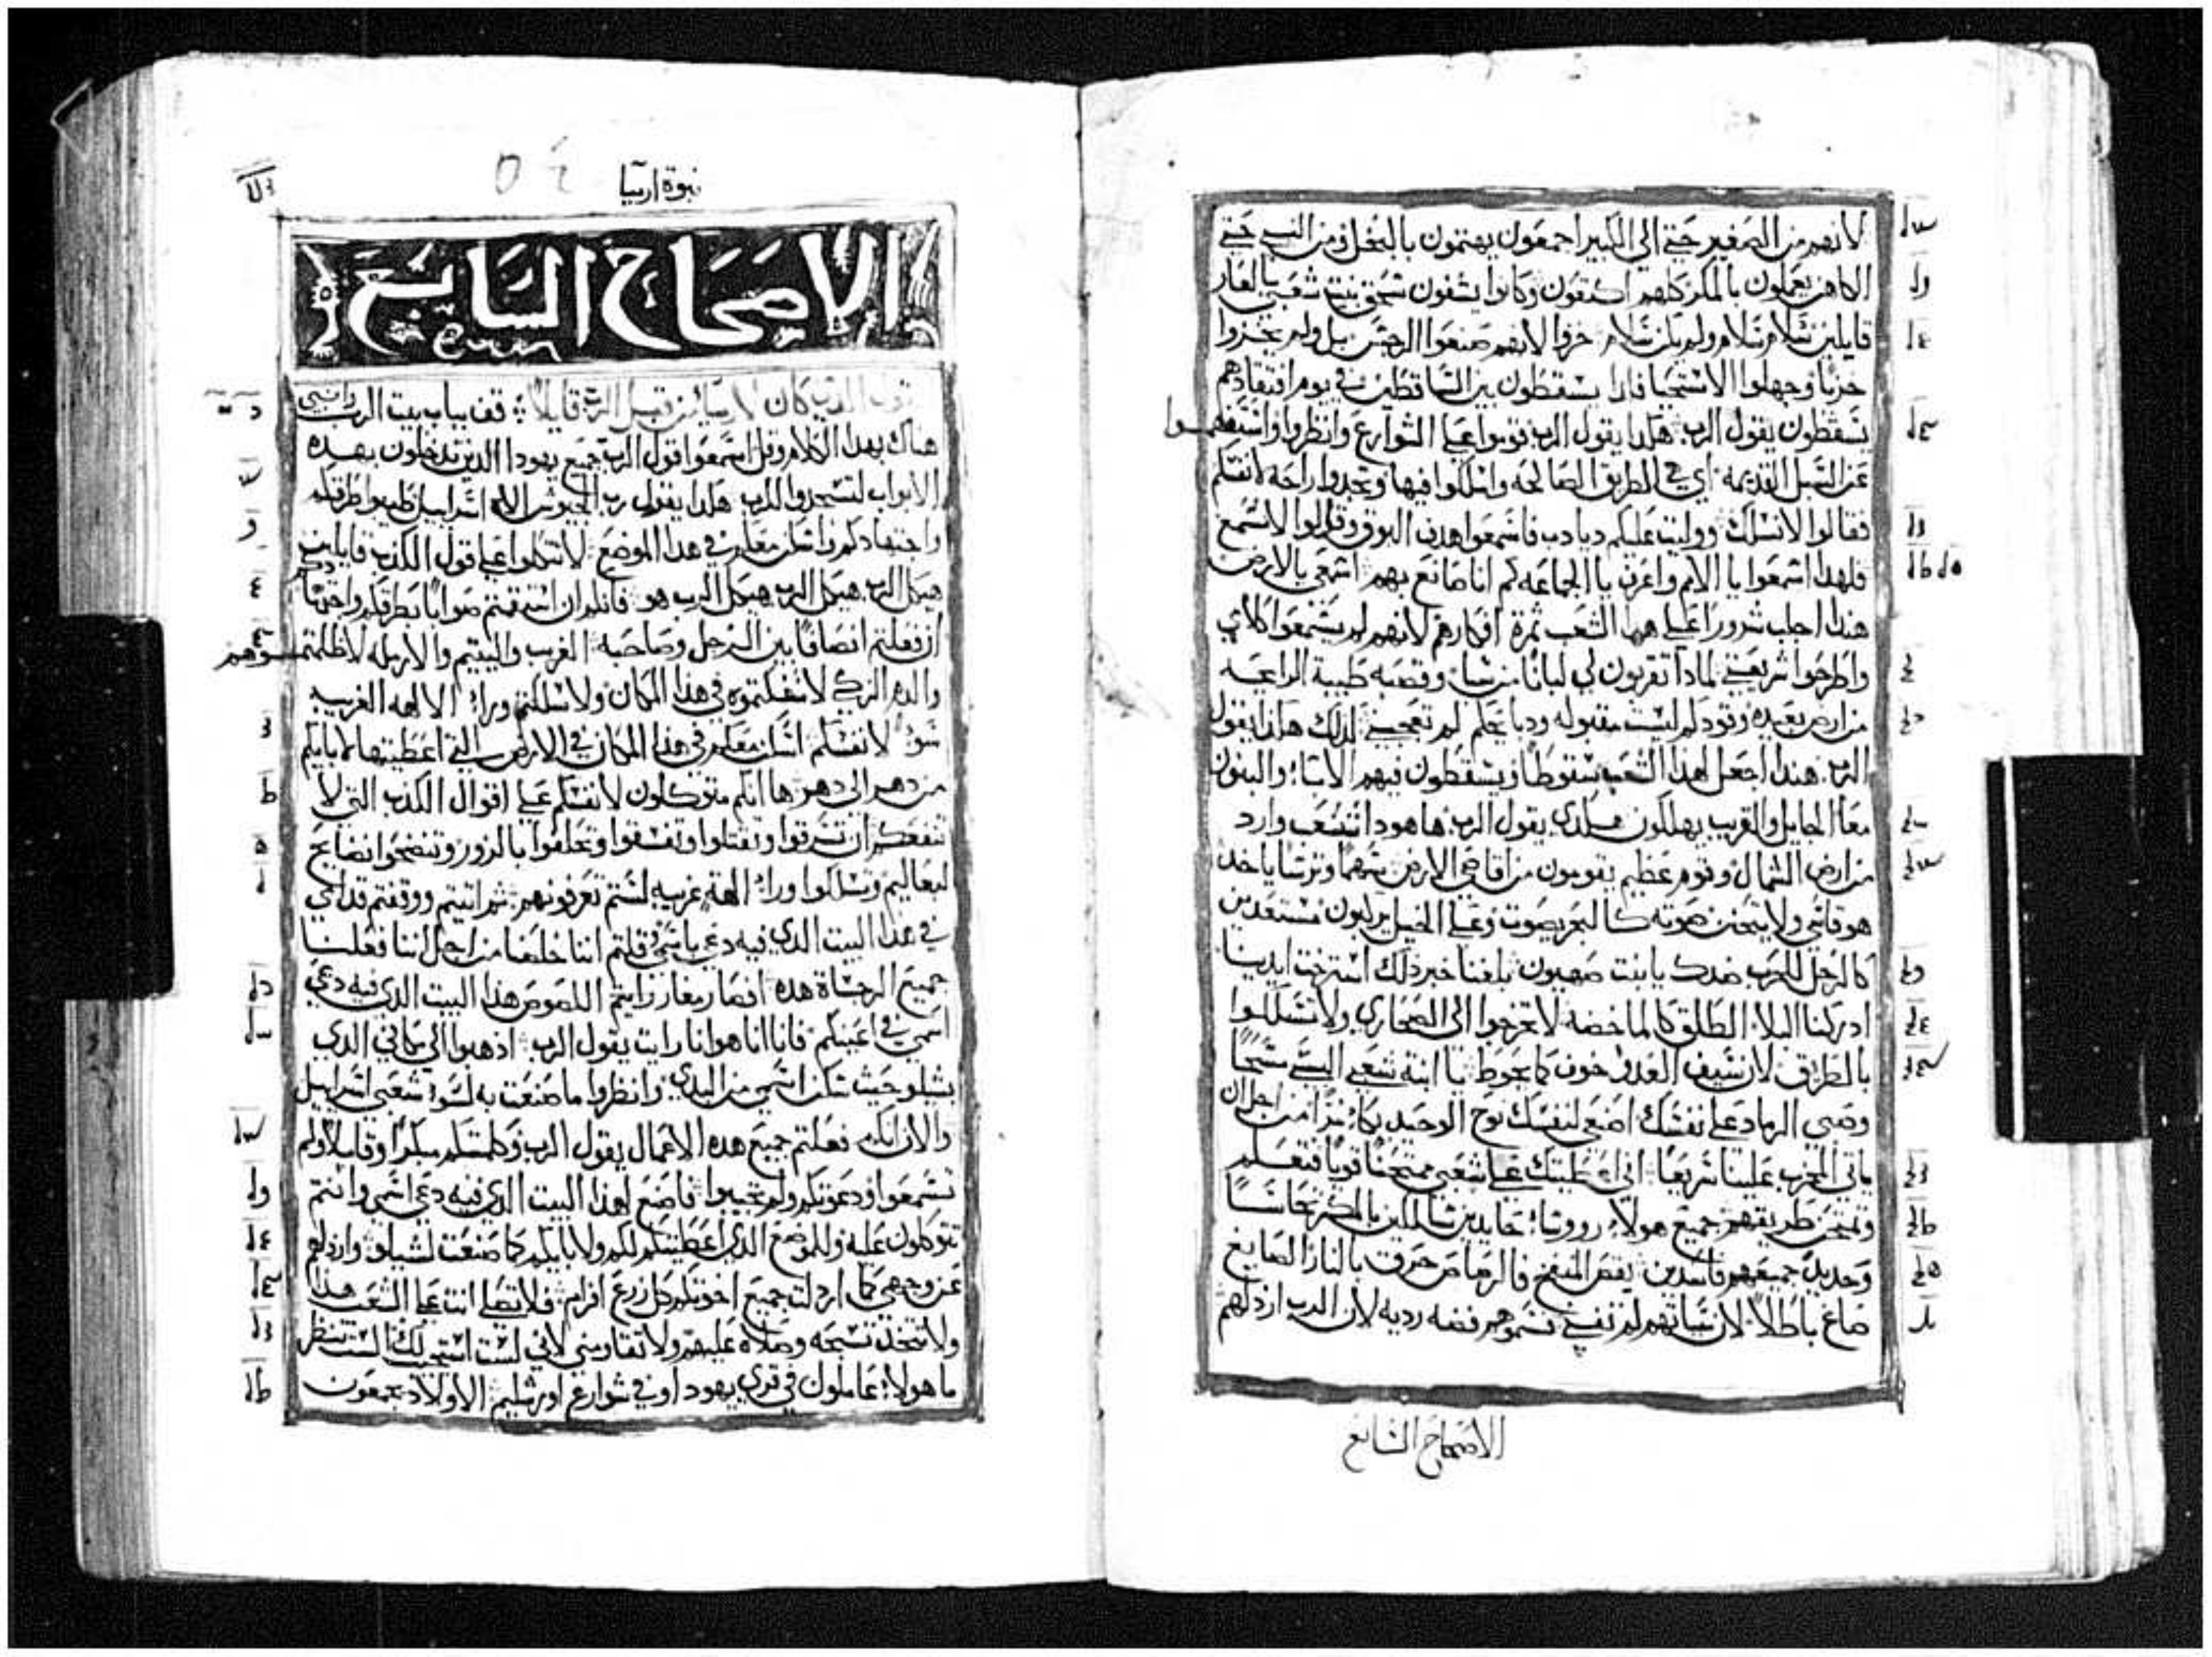 لانهم من الصغير حتي الي الكبير اجمعون يهتمون بالبخل ومن النبي حتي
الكاهن يعملون بالمكر كلهم اجمعون وكانوا يشفون سحق بنت شعبي بالعار
قايلين سلام سلام ولم يكن سلام خزوا لانهم صنعوا الرجس بل ولم يخزوا
خزيا وجهلوا الاستحيا فلذا يسقطون بين الساقطين في يوم افتقادهم
يسقطون يقول الرب هكذا يقول الرب قوموا علي الشوارع وانظروا واستفهموا
عن السبل القديمه اي هي الطريق الصالحه واسلكوا فيها وتجدوا راحه لانفسكم
فقالوا لا نسلك ووليت عليكم ديادب فاسمعوا هدف البوق وقالوا لا نسمع
فلهذا اسمعوا يا الامم واعرفي يا الجماعه كم انا صانع بهم اسمعي يا الارض
هنذا اجلب شرورا علي هذا الشعب ثمرة افكارهم لانهم لم يستمعوا كلامي
واطرحوا شريعتي لماذا تقربون لي لبانا من سبا وقصبه طيبة الرايحه
من ارض بعيده وقودكم ليست مقبوله ودبايحكم لم تعجبني لذلك هكذا يقول
الرب هنذا اجعل لهذا الشعب سقوطا ويسقطون فيهم الابا والبنون
معا الجايل والقريب يهلكون هكذي يقول الرب ها هوذا شعب وارد
من ارض الشمال وقوم عظيم يقومون من اقاصي الارض سهما وترسا ياخذ
هو قاسي ولا يتحنن صوته كالبحر يصوت وعلي الخيل يركبون مستعدين
كالرجل للحرب ضدك يا بنت صهيون بلغنا خبر ذلك استرخت ايدينا
ادركنا البلا الطلق كالماخضه لا تخرجوا الي الصحاري ولا تسلكوا
بالطريق لان سيف العدو خوف كما يحوط يا ابنة شعبي البسي مسحا
وضعي الرماد علي نفسك اصنعي لنفسك نوح الوحيد بكا مرا من اجل ان
ياتي المخرب علينا سريعا اني اعطيتك علي شعبي ممتحنا قويا فتعلم
وتمتحن طريقهم جميع هولاء رووسا حايدين سالكين بالمكر نحاسا
وحديدا جميعهم فاسدين نقص المنفخ فالرصاص حرق بالنار الصايغ
صاغ باطلا لان سياتهم لم تفني تسموهم فضه رديه لان الرب ارذلهم
الاصحاح السابع
نبوة ارميا
٥٤
الاصحاح السابع
قول الذي كان لارميا من قبل الرب قايلا قف بباب بيت الرب ونبي
هناك بهذا الكلام وقل اسمعوا قول الرب جميع يهودا الذين تدخلون بهذه
الابواب لتسجدوا للرب هكذا يقول رب الجيوش اله اسراييل طيبوا طرقكم
واجتهادكم واسكن معكم في هذا الموضع لا تتكلوا علي قول الكذب قايلين
هيكل الرب هيكل الرب هيكل الرب هو فانكم ان استقمتم صوابا بطرقكم واجتهادكم
ان فعلتم انصافا بين الرجل وصاحبه الغريب واليتيم والارمله لا ظلمتموهم
والدم الزكي لا سفكتموه في هذا المكان ولا سلكتم وراء الالهه الغريبه
سو لانفسكم اسكن معكم في هذا المكان في الارض التي اعطيتها لابايكم
من دهر الي دهر ها انكم متوكلون لانفسكم علي اقوال الكذب التي لا
تنفعكم ان تسرقوا وتقتلوا وتفسقوا وتحلفوا بالزور وتنضحوا نضايح
لبعاليم وتسلكوا وراء الهة غريبه لستم تعرفونهم ثم اتيتم ووقفتم قدامي
في هذا البيت الذي فيه دعي باسمي وقلتم اننا خلصنا من اجل اننا فعلنا
جميع الرجساة هذه افصار مغار زايتم اللصوص هذا البيت الذي فيه دعي
اسمي في اعينكم فانا انا هو انا رايت يقول الرب اذهبوا الي مكاني الذي
بشيلو حيث سكن اسمي من البدي وانظروا ما صنعت به لسوء شعبي اسراييل
والان انكم فعلتم جميع هذه الاعمال يقول الرب وكلمتكم مبكرا وقايلا ولم
تسمعوا ودعوتكم ولم تجيبوا فاصنع لهذا البيت الذي فيه دعي اسمي وانتم
تتوكلون عليه وللموضع الذي اعطيتكم لكم ولابايكم كما صنعت لشيلو وارذلكم
عن وجهي كما ارذلت جميع اخوتكم كل زرع افرام فلا تصلي انت علي الشعب هذا
ولا تتخذ تسبحه وصلاه عليهم ولا تقاومني لاني لست استجيب لك الست تنظر
ما هولاء عاملون في قري يهودا وفي شوارع اورشليم الاولاد يجمعون